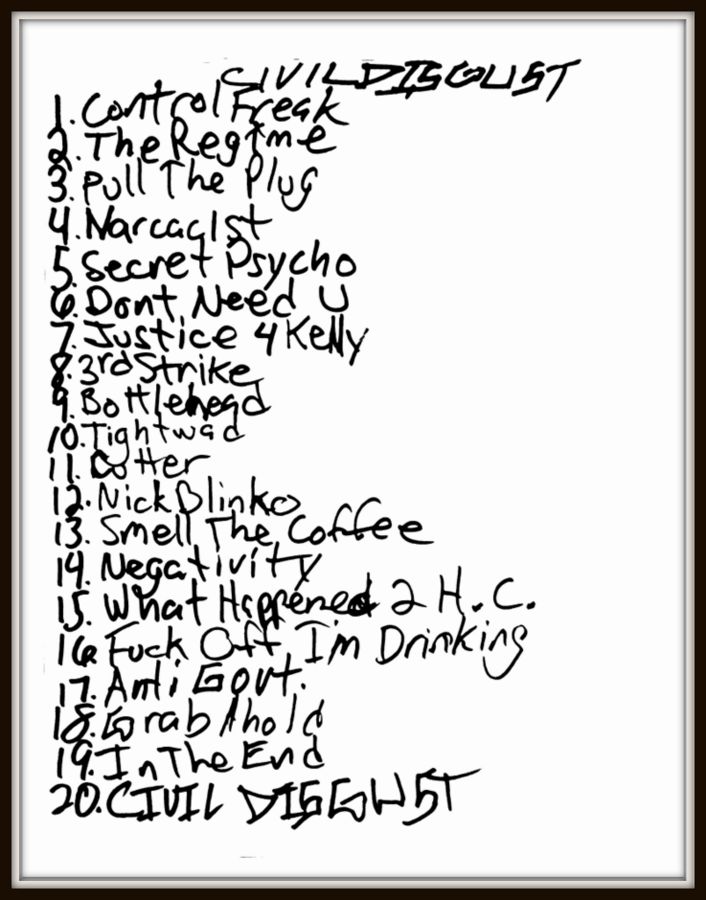 CIVIL DISGUST
1. Control Freak
2. The Regime
3. Pull The Plug
4. Narcacist
5. Secret Psycho
6. Dont Need U
7. Justice 4 Kelly
8. 3rd Strike
9. Bottlehead
10. Tightwad
11.
12. Nick Blinko
13. Smell The Coffee
14. Negativity
15. What Happened 2 H.C.
16. Fuck Off, I'm Drinking
17. Anti Govt.
18. Grab Ahold
19. In The End
20. CIVIL DISGUST